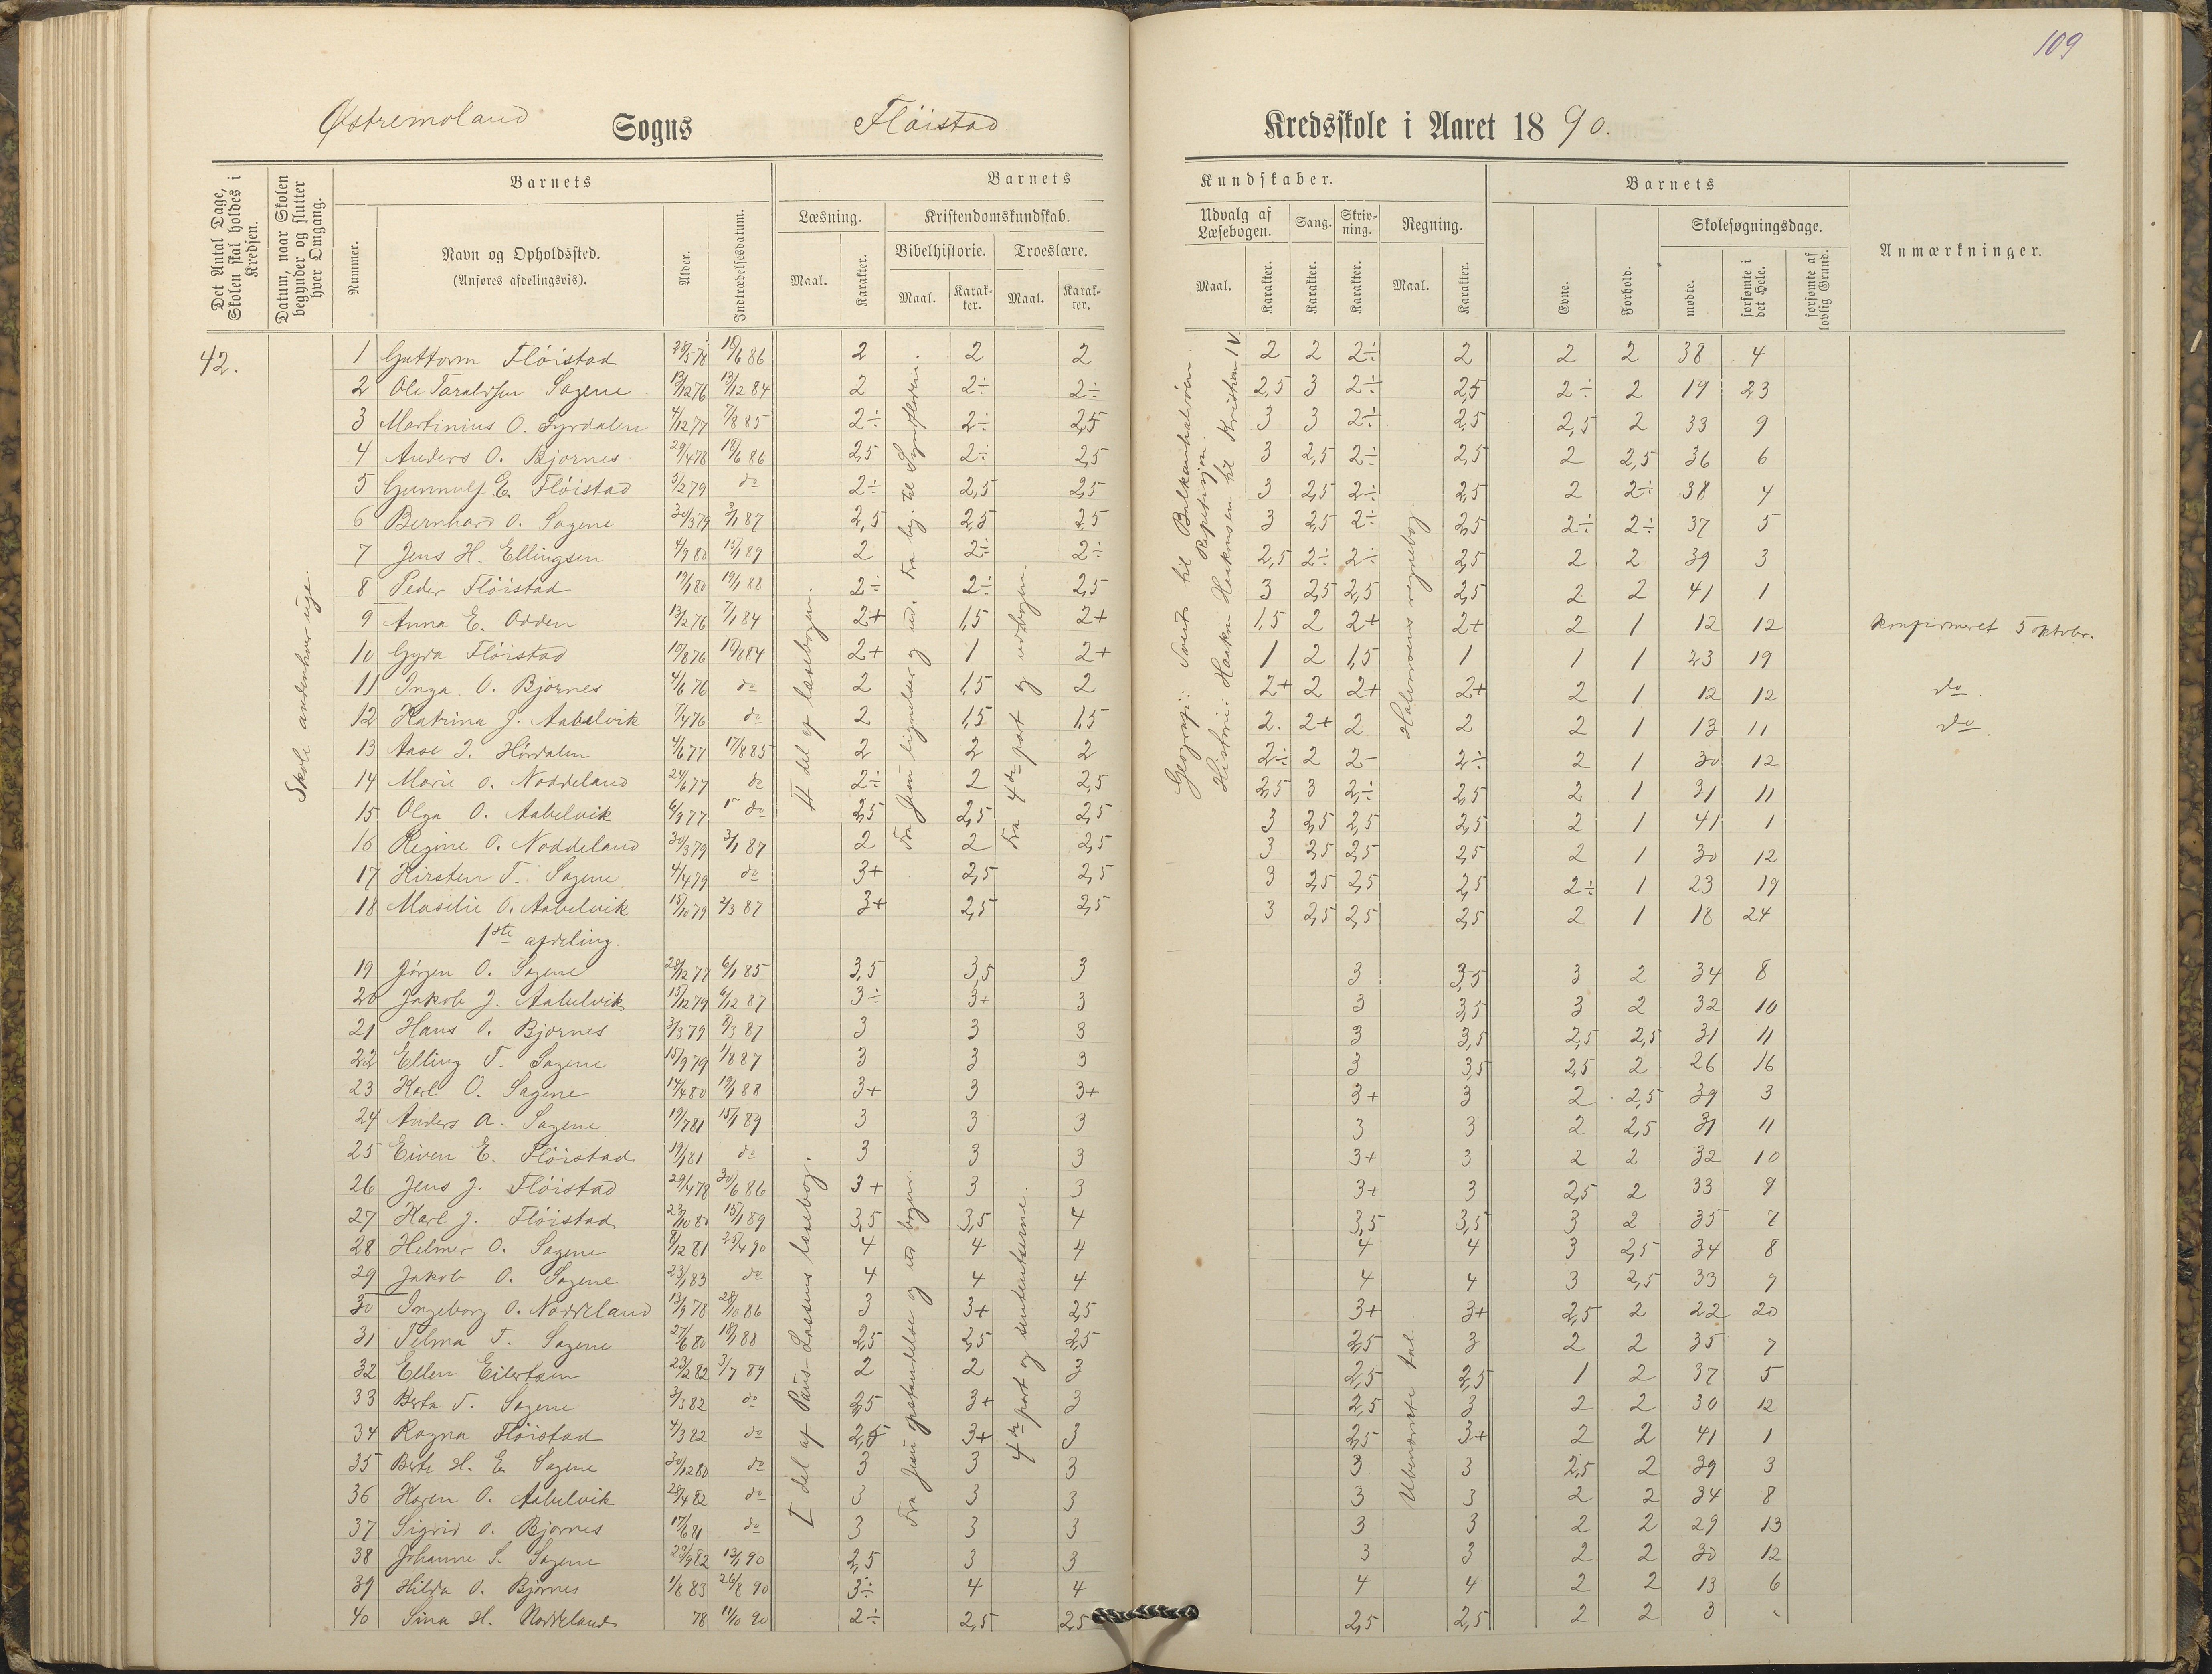 109
Østremoland Sogns Flöistad Kredsskole i Aaret 1890.
Det Antal Dage, Skolen skal holdes i Kredsen.
Datum, naar Skolen begynder og slutter hver Omgang.
Barnets
Nummer.
Navn og Opholdssted.
(Anføres afdelingsvis).
Alder.
Indtrædelsesdatum.
Barnets Kundskaber.
Læsning.
Maal.
Karakter.
Kristendomskundskab.
Bibelhistorie.
Maal.
Karakter.
Troeslære.
Maal.
Karakter.
Udvalg af Læsebogen.
Maal.
Karakter.
Sang.
Karakter.
Skrivning.
Karakter.
Regning.
Maal.
Karakter.
Barnets
Evne.
Forhold.
Skolesøgningsdage.
mødte.
forsømte i det Hele.
forsømte af lovlig Grund.
Anmærkninger.
42.
Skole andenhver uge.
II del af læsebogen.
Fra Jesu lignelser og ud. Fra beg. til Syndfloden.
Fra 4de part og ud bogen.
Geografi: Sverds til Balkanhalvöen. Repetisjon.
Historie: Haakon Haakonsen til Kristian IV.
Halvorsens regnebog.
1 Guttorm Flöistad 28/5 78 18/6 86 2 2 2 2 2 2÷ 2 2 2 38 4
2 Ole Taraldsen Sagene 13/12 76 13/12 84 2 2÷ 2÷ 2,5 3 2÷ 2,5 2÷ 2 19 23
3 Martinius O. Lyrdalen 4/12 77 7/8 85 2÷ 2÷ 2,5 3 3 2÷ 2,5 2,5 2 33 9
4 Anders O. Bjornes 29/4 78 18/6 86 2,5 2÷ 2,5 3 2,5 2÷ 2,5 2 2,5 36 6
5 Gunnulf E. Flöistad 5/2 79 do 2÷ 2,5 2,5 3 2,5 2÷ 2,5 2 2÷ 38 4
6 Bernhard O. Sagene 30/3 79 3/1 87 2,5 2,5 2,5 3 2,5 2÷ 2,5 2÷ 2÷ 37 5
7 Jens H. Ellingsen 4/9 80 15/1 89 2 2÷ 2÷ 2,5 2÷ 2÷ 2,5 2 2 39 3
8 Peder Flöistad 19/1 80 19/1 88 2÷ 2÷ 2,5 3 2,5 2,5 2,5 2 2 41 1
9 Anna E. Odden 13/2 76 7/1 84 2+ 1,5 2+ 1,5 2 2+ 2+ 2 1 12 12 konfirmeret 5 oktobr.
10 Gyda Flöistad 10/8 76 19/8 84 2+ 1 2+ 1 2 1,5 1 1 1 23 19
11 Inga O. Bjornes 4/6 76 do 2 1,5 2 2+ 2 2+ 2+ 2 1 12 12 do
12 Katrina J. Aabelvik 7/4 76 do 2 1,5 1,5 2. 2+ 2 2 2 1 13 11 do
13 Aase J. Hördalen 4/6 77 17/8 85 2 2 2 2÷ 2 2- 2÷ 2 1 30 12
14 Marie O. Noddeland 24/6 77 do 2÷ 2 2,5 2,5 3 2,÷ 2,5 2 1 31 11
15 Olga O. Aabelvik 6/9 77 do 2,5 2,5 2,5 3 2,5 2,5 2,5 2 1 41 1
16 Regine O. Noddeland 30/3 79 3/1 87 2 2 2,5 3 2,5 2,5 2,5 2 1 30 12
17 Kirsten T. Sagene 4/4 79 do 3+ 2,5 2,5 3 2,5 2,5 2,5 2÷ 1 23 19
18 Masilie O. Aabelvik 15/10 79 2/3 87 3+ 2,5 2,5 3 2,5 2,5 2,5 2 1 18 24
1ste afdeling.
I del af Paus-Lassens læsebog.
Fra Jesu opstandelse og ud bogen.
4de part og sententserne.
Ubenævnte tal.
19 Jörgen O. Sagene 28/12 77 6/1 85 3,5 3,5 3 3 3,5 3 2 34 8
20 Jakob J. Aabelvik 15/12 79 6/12 87 3÷ 3+ 3 3 3,5 3 2 32 10
21 Hans O. Bjornes 3/3 79 8/3 87 3 3 3 3 3,5 2,5 2,5 31 11
22 Elling T. Sagene 15/9 79 1/8 87 3 3 3 3 3,5 2,5 2 26 16
23 Karl O. Sagene 14/4 80 19/1 88 3+ 3 3+ 3+ 3 2 2,5 39 3
24 Anders A. Sagene 19/7 81 15/1 89 3 3 3 3 3 2 2,5 31 11
25 Eiven E. Flöistad 19/1 81 do 3 3 3 3+ 3 2 2 32 10
26 Jens J. Flöistad 29/4 78 30/6 86 3+ 3 3 3+ 3 2,5 2 33 9
27 Karl J. Flöistad 23/10 80 15/1 89 3,5 3,5 4 3,5 3,5 3 2 35 7
28 Helmer O. Sagene 8/12 81 25/4 90 4 4 4 4 4 3 2,5 34 8
29 Jakob O. Sagene 23/1 83 do 4 4 4 4 4 3 2,5 33 9
30 Ingeborg O. Noddeland 13/9 78 28/10 86 3 3+ 2,5 3+ 3+ 2,5 2 22 20
31 Telma T. Sagene 27/6 80 18/1 88 2,5 2,5 2,5 2,5 3 2 2 35 7
32 Ellen Eilertsen 23/2 82 3/7 89 2 2 3 2,5 2,5 1 2 37 5
33 Berta T. Sagene 3/3 82 do 2,5 3+ 3 2,5 3 2 2 30 12
34 Ragna Flöistad 4/3 82 do 2,5 3+ 3 2,5 3+ 2 2 41 1
35 Berte H. E. Sagene 30/12 80 do 3 3 3 3 3 2,5 2 39 3
36 Karen O. Aabelvik 28/4 82 do 3 3 3 3 3 2 2 34 8
37 Sigrid O. Bjornes 17/6 81 do 3 3 3 3 3 2 2 29 13
38 Johanne S. Sagene 23/9 82 13/1 90 2,5 3 3 3 3 2 2 30 12
39 Hilda O. Bjornes 1/8 83 26/8 90 3÷ 4 4 4 4 2 2 13 6
40 Sina H. Noddeland 78 11/10 90 2÷ 2,5 2,5 2,5 2,5 2 2 3